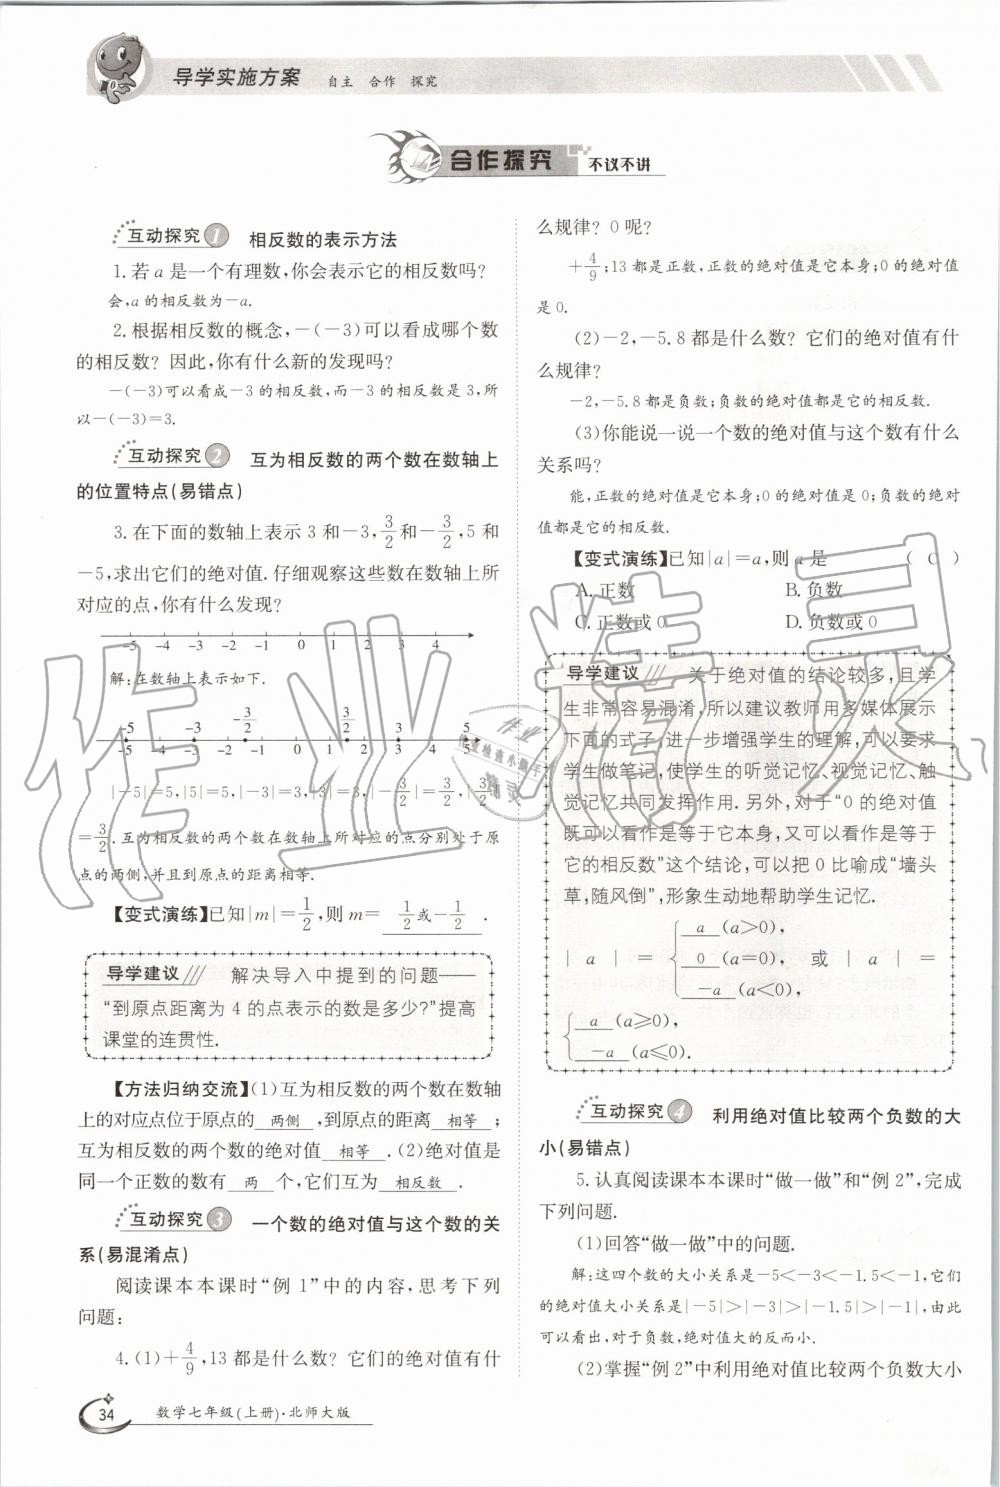 导学实施方案 自主 合作 探究
合作探究 不议不讲
互动探究 1 相反数的表示方法
1.若 a 是一个有理数,你会表示它的相反数吗?
会,a 的相反数为-a.
2.根据相反数的概念,-(-3)可以看成哪个数
的相反数? 因此,你有什么新的发现吗?
-(-3)可以看成-3 的相反数,而-3 的相反数是 3,所
以-(-3)=3.
互动探究 2 互为相反数的两个数在数轴上
的位置特点(易错点)
3.在下面的数轴上表示 3 和-3,3/2和-3/2,5 和
-5,求出它们的绝对值.仔细观察这些数在数轴上所
对应的点,你有什么发现?
-5 -4 -3 -2 -1 0 1 2 3 4
解:在数轴上表示如下.
-5 -3 -3/2 3/2 3 5
-5 -4 -3 -2 -1 0 1 2 3 4 5
|-5|=5,|5|=5,|-3|=3,|3|=3,|-3/2|=3/2,|3/2|
=3/2.互为相反数的两个数在数轴上所对应的点分别处于原
点的两侧,并且到原点的距离相等.
【变式演练】已知|m|=1/2,则 m= 1/2或-1/2 .
导学建议 解决导入中提到的问题——
“到原点距离为 4 的点表示的数是多少?”提高
课堂的连贯性.
【方法归纳交流】(1)互为相反数的两个数在数轴
上的对应点位于原点的 两侧 ,到原点的距离 相等 ;
互为相反数的两个数的绝对值 相等 .(2)绝对值是
同一个正数的数有 两 个,它们互为 相反数 .
互动探究 3 一个数的绝对值与这个数的关
系(易混淆点)
阅读课本本课时“例 1”中的内容,思考下列
问题:
4.(1)+4/9,13 都是什么数? 它们的绝对值有什
么规律? 0 呢?
+4/9;13 都是正数,正数的绝对值是它本身;0 的绝对值
是 0.
(2)-2,-5.8 都是什么数? 它们的绝对值有什
么规律?
-2,-5.8 都是负数;负数的绝对值都是它的相反数.
(3)你能说一说一个数的绝对值与这个数有什么
关系吗?
能,正数的绝对值是它本身;0 的绝对值是 0;负数的绝对
值都是它的相反数.
【变式演练】已知|a|=a,则 a 是 ( C )
A. 正数 B. 负数
C. 正数或 0 D. 负数或 0
导学建议 关于绝对值的结论较多,且学
生非常容易混淆,所以建议教师用多媒体展示
下面的式子,进一步增强学生的理解,可以要求
学生做笔记,使学生的听觉记忆、视觉记忆、触
觉记忆共同发挥作用. 另外,对于“0 的绝对值
既可以看作是等于它本身,又可以看作是等于
它的相反数”这个结论,可以把 0 比喻成“墙头
草,随风倒”,形象生动地帮助学生记忆.
|a|={ a (a>0),
0 (a=0), 或 |a|=
-a (a<0),
{ a (a≥0),
-a (a≤0).
互动探究 4 利用绝对值比较两个负数的大
小(易错点)
5.认真阅读课本本课时“做一做”和“例 2”,完成
下列问题.
(1)回答“做一做”中的问题.
解:这四个数的大小关系是-5<-3<-1.5<-1,它们
的绝对值大小关系是|-5|>|-3|>|-1.5|>|-1|,由此
可以看出,对于负数,绝对值大的反而小.
(2)掌握“例 2”中利用绝对值比较两个负数大小
34 数学七年级(上册)·北师大版
作业精灵